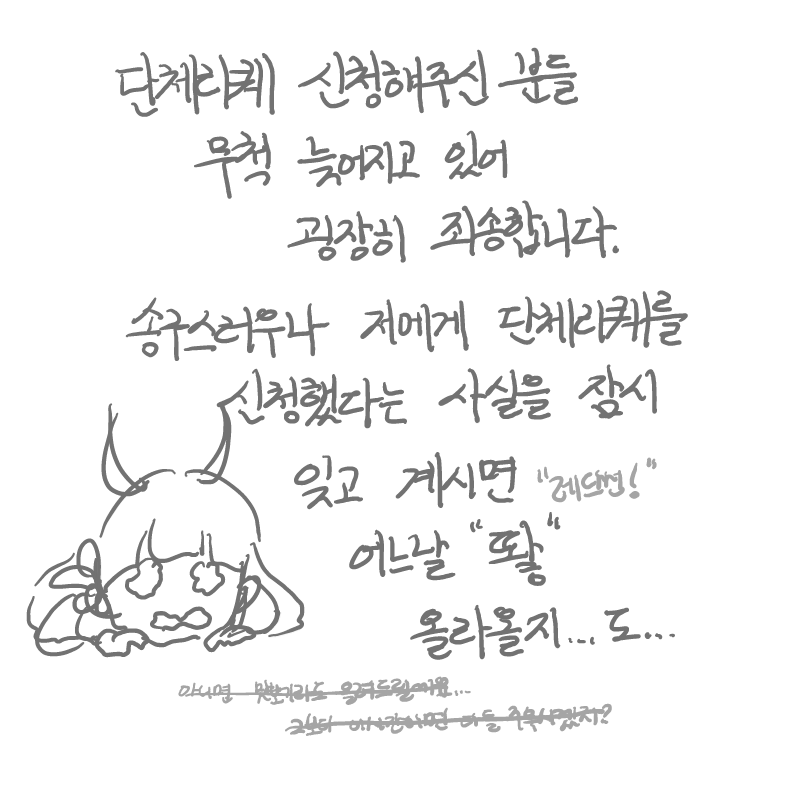 단체리퀘 신청해주신 분들
무척 늦어지고 있어
굉장히 죄송합니다.
송구스러우나 저에게 단체리퀘를
신청했다는 사실을 잠시
잊고 계시면
어느날 "뙇"
올라올지... 도...
아니면 맛보기라도 올려드릴까요...
다들